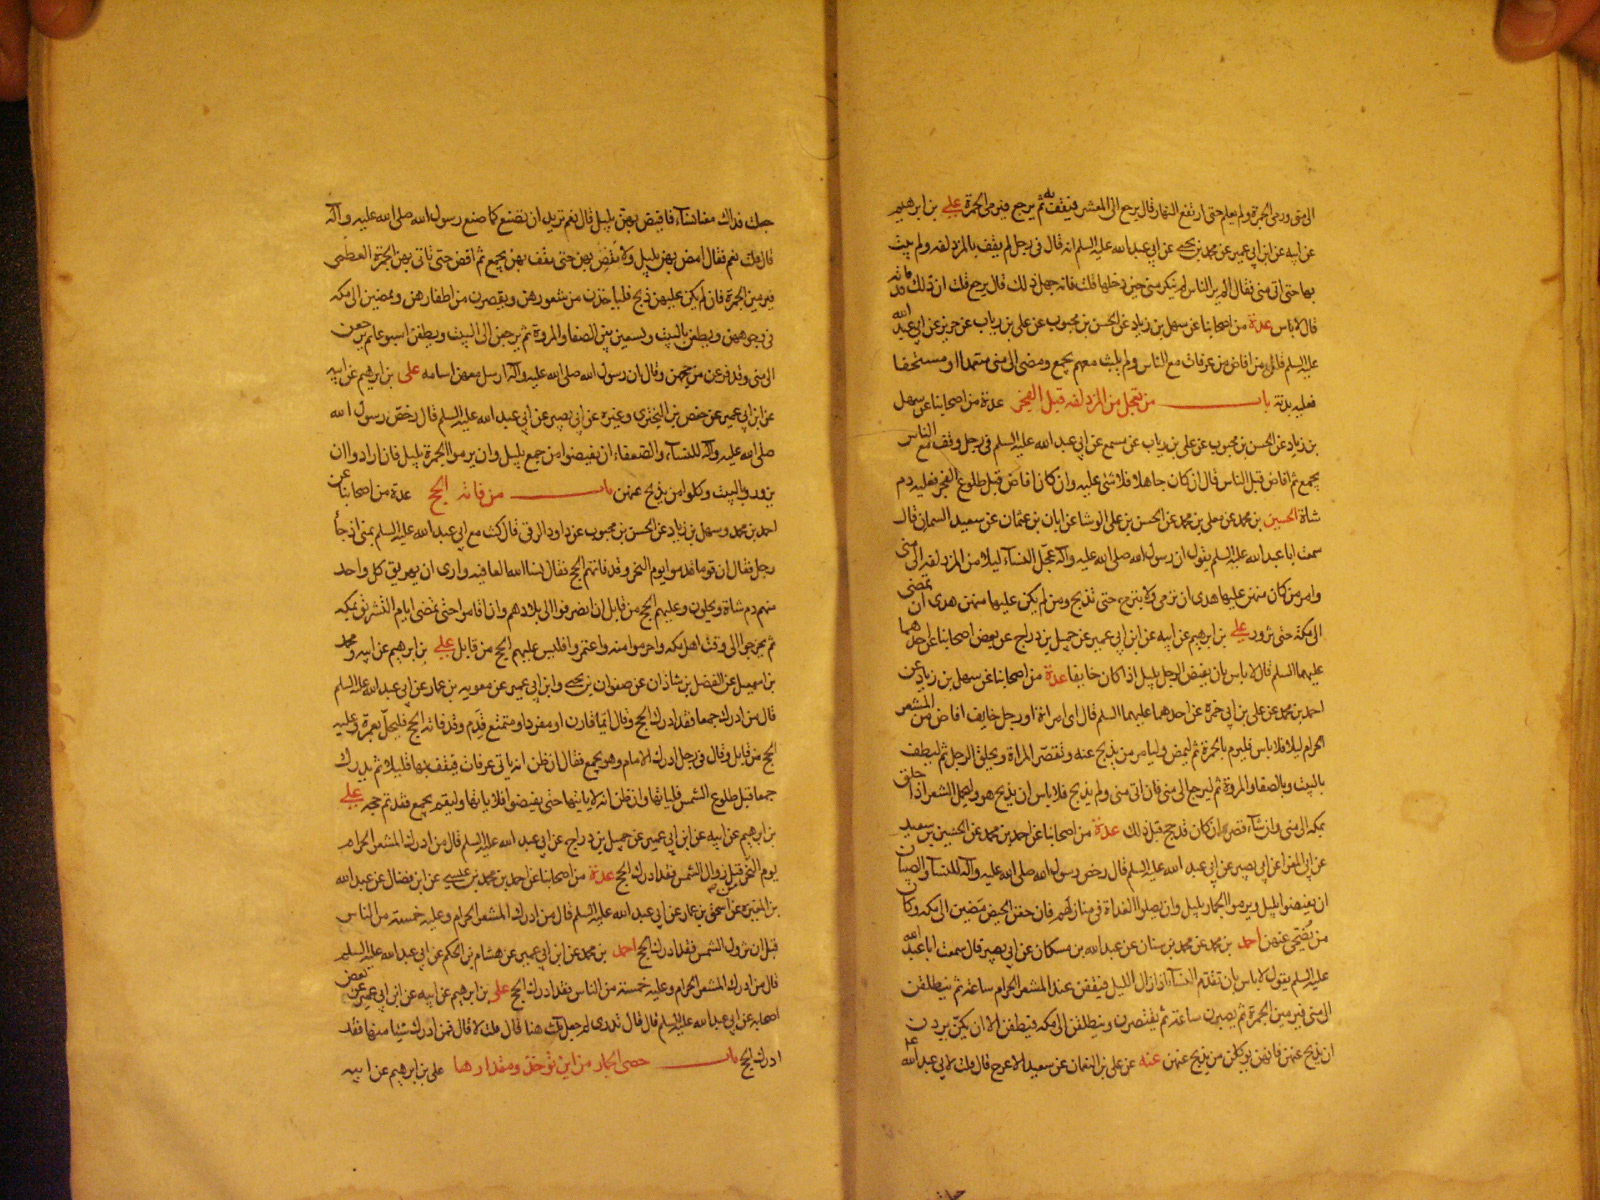 الى منى ورمى الجمرة ولم يعلم حتى ارتفع النهار قال يرجع الى المشعر فيقف به ثم يرجع فيرمى الجمرة على بن ابرهيم
عن ابيه عن ابن ابي عمير عن محمد بن يحيى عن ابي عبد الله عليه السلم انه قال فى رجل لم يقف بالمزدلفه ولم يبت
بها حتى اتى منى فقال الم ير الناس لم تبكر منى حين دخلها قلت فانه جهل ذلك قال يرجع قلت ان ذلك قد فاته
قال لا باس عدة من اصحابنا عن سهل بن زياد عن الحسن بن محبوب عن على بن رياب عن حريز عن ابي عبد الله
عليه السلم قال من افاض من عرفات مع الناس ولم يلبث معهم بجمع ومضى الى منى متعمدا او مستخفا
فعليه بدنة باب من تعجل من المزدلفه قبل الفجر عدة من اصحابنا عن سهل
بن زياد عن الحسن بن محبوب عن على بن رياب عن مسمع عن ابي عبد الله عليه السلم فى رجل وقف مع الناس
بجمع ثم افاض قبل الناس قال ان كان جاهلا فلا شئ عليه وان كان افاض قبل طلوع الفجر فعليه دم
شاة الحسين بن محمد عن معلى بن محمد عن الحسن بن على الوشا عن ابان بن عثمان عن سعيد السمان قال
سمعت ابا عبد الله عليه السلم يقول ان رسول الله صلى الله عليه وآله عجل النساء ليلا من المزدلفه الى منى
وامر من كان منهن عليها هدى ان ترمى ولا تبرح حتى تذبح ومن لم يكن عليها منهن هدى ان تمضى
الى مكة حتى تزور على بن ابرهيم عن ابيه عن ابن ابي عمير عن جميل بن دراج عن بعض اصحابنا عن احدهما
عليهما السلم قال لا باس بان يفيض الرجل بليل اذا كان خايفا عدة من اصحابنا عن سهل بن زياد عن
احمد بن محمد عن على بن ابي حمزة عن احدهما عليهما السلم قال اى امراة او رجل خايف افاض من المشعر
الحرام ليلا فلا باس فليرم بالجمرة ثم ليمض وليامر من يذبح عنه وتقصر المراة ويحلق الرجل ثم ليطف
بالبيت وبالصفا والمروة ثم ليرجع الى منى فان اتى منى ولم يذبح فلا باس ان يذبح هو وليحمل الشعر اذا حلق
بمكه الى منى وان شاء قصر ان كان قد حج قبل ذلك عدة من اصحابنا عن احمد بن محمد عن الحسين بن سعيد
عن ابي المغرا عن ابي بصير عن ابي عبد الله عليه السلم قال رخص رسول الله صلى الله عليه وآله للنساء والصبيان
ان يفيضوا بليل ويرموا الجمار بليل وان يصلوا الغداة فى منازلهم فان خفن الحيض مضين الى مكه ووكلن
من يضحى عنهن احمد بن محمد عن محمد بن سنان عن عبد الله بن مسكان عن ابي بصير قال سمعت ابا عبد الله
عليه السلم يقول لا باس بان تقدم النساء اذا زال الليل فيقفن عند المشعر الحرام ساعة ثم ينطلقن
الى منى فيرمين الجمرة ثم يصبرن ساعة ثم يقصرن وينطلقن الى مكه فيطفن الا ان يكن يردن
ان يذبح عنهن فانهن يوكلن من يذبح عنهن عنه عن على بن النعمان عن سعيد الاعرج قال قلت لابي عبد الله
جعلت فداك معنا نساء فافيض بهن بليل قال نعم تريد ان تصنع كما صنع رسول الله صلى الله عليه وآله
قال قلت نعم فقال افض بهن بليل ولا تفض بهن حتى تقف بهن بجمع ثم افض حتى تاتى بهن الجمرة العظمى
فيرمين الجمرة فان لم يكن عليهن ذبح فلياخذن من شعورهن ويقصرن من اظفارهن ويمضين الى مكه
فى وجوههن ويطفن بالبيت ويسعين بين الصفا والمروة ثم يرجعن الى البيت ويطفن اسبوعا ثم يرجعن
الى منى وقد فرغن من حجهن وقال ان رسول الله صلى الله عليه وآله ارسل معهن اسامه على بن ابرهيم عن ابيه
عن ابن ابي عمير عن حفص بن البخترى وغيره عن ابي بصير عن ابي عبد الله عليه السلم قال رخص رسول الله
صلى الله عليه وآله للنساء والضعفاء ان يفيضوا من جمع بليل وان يرموا الجمرة بليل فان ارادوا ان
يزوروا البيت وكلوا من يذبح عنهن باب من فاته الحج عدة من اصحابنا عن
احمد بن محمد وسهل بن زياد عن الحسن بن محبوب عن داود الرقى قال كنت مع ابي عبد الله عليه السلم بمنى اذ جاء
رجل فقال ان قوما قدموا يوم النحر وقد فاتهم الحج فقال نسأل الله العافيه وارى ان يهريق كل واحد
منهم دم شاة ويحلون وعليهم الحج من قابل ان انصرفوا الى بلادهم وان اقاموا حتى تمضى ايام التشريق بمكه
ثم يخرجوا الى وقت اهل مكه واحرموا منه واعتمروا فليس عليهم الحج من قابل على بن ابرهيم عن ابيه ومحمد
بن اسمعيل عن الفضل بن شاذان عن صفوان بن يحيى وابن ابي عمير عن معويه بن عمار عن ابي عبد الله عليه السلم
قال من ادرك جمعا فقد ادرك الحج وقال ايما قارن او مفرد او متمتع قدم وقد فاته الحج فليحل بعمرة وعليه
الحج من قابل وقال فى رجل ادرك الامام وهو بجمع فقال ان ظن انه ياتى عرفات فيقف بها قليلا ثم يدرك
جمعا قبل طلوع الشمس فلياتها وان ظن انه لا ياتيها حتى يفيضوا فلا ياتها وليقم بجمع فقد تم حجه على
بن ابرهيم عن ابيه عن ابن ابي عمير عن جميل بن دراج عن ابي عبد الله عليه السلم قال من ادرك المشعر الحرام
يوم النحر قبل زوال الشمس فقد ادرك الحج عدة من اصحابنا عن احمد بن محمد بن عيسى عن ابن فضال عن عبد الله
بن المغيره عن اسحق بن عمار عن ابي عبد الله عليه السلم قال من ادرك المشعر الحرام وعليه خمسة من الناس
قبل ان تزول الشمس فقد ادرك الحج احمد بن محمد عن ابن ابي عمير عن هشام بن الحكم عن ابي عبد الله عليه السلم
قال من ادرك المشعر الحرام وعليه خمسة من الناس فقد ادرك الحج على بن ابرهيم عن ابيه عن ابن ابي عمير عن بعض
اصحابه عن ابي عبد الله عليه السلم قال قال تدرى لم جعل ثلث هنا قال قلت لا قال فمن ادرك شيئا منها فقد
ادرك الحج باب حصى الجمار من اين تؤخذ ومقدارها على بن ابرهيم عن ابيه